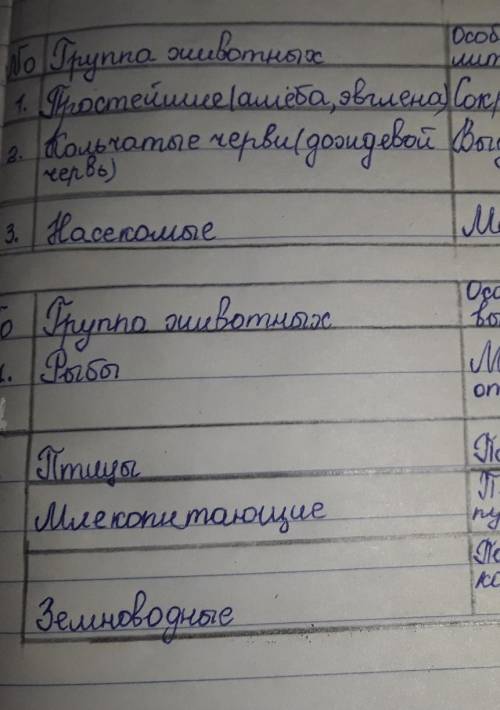 № Группа животных Особ
лит
1. Простейшие (амёба, эвглена) Сокр
2. Кольчатые черви (дождевой Выд
червь)
3. Насекомые М
Группа животных Осо
вы
1. Рыбы М
оп
Птицы По
Млекопитающие П
пу
По
ко
Земноводные